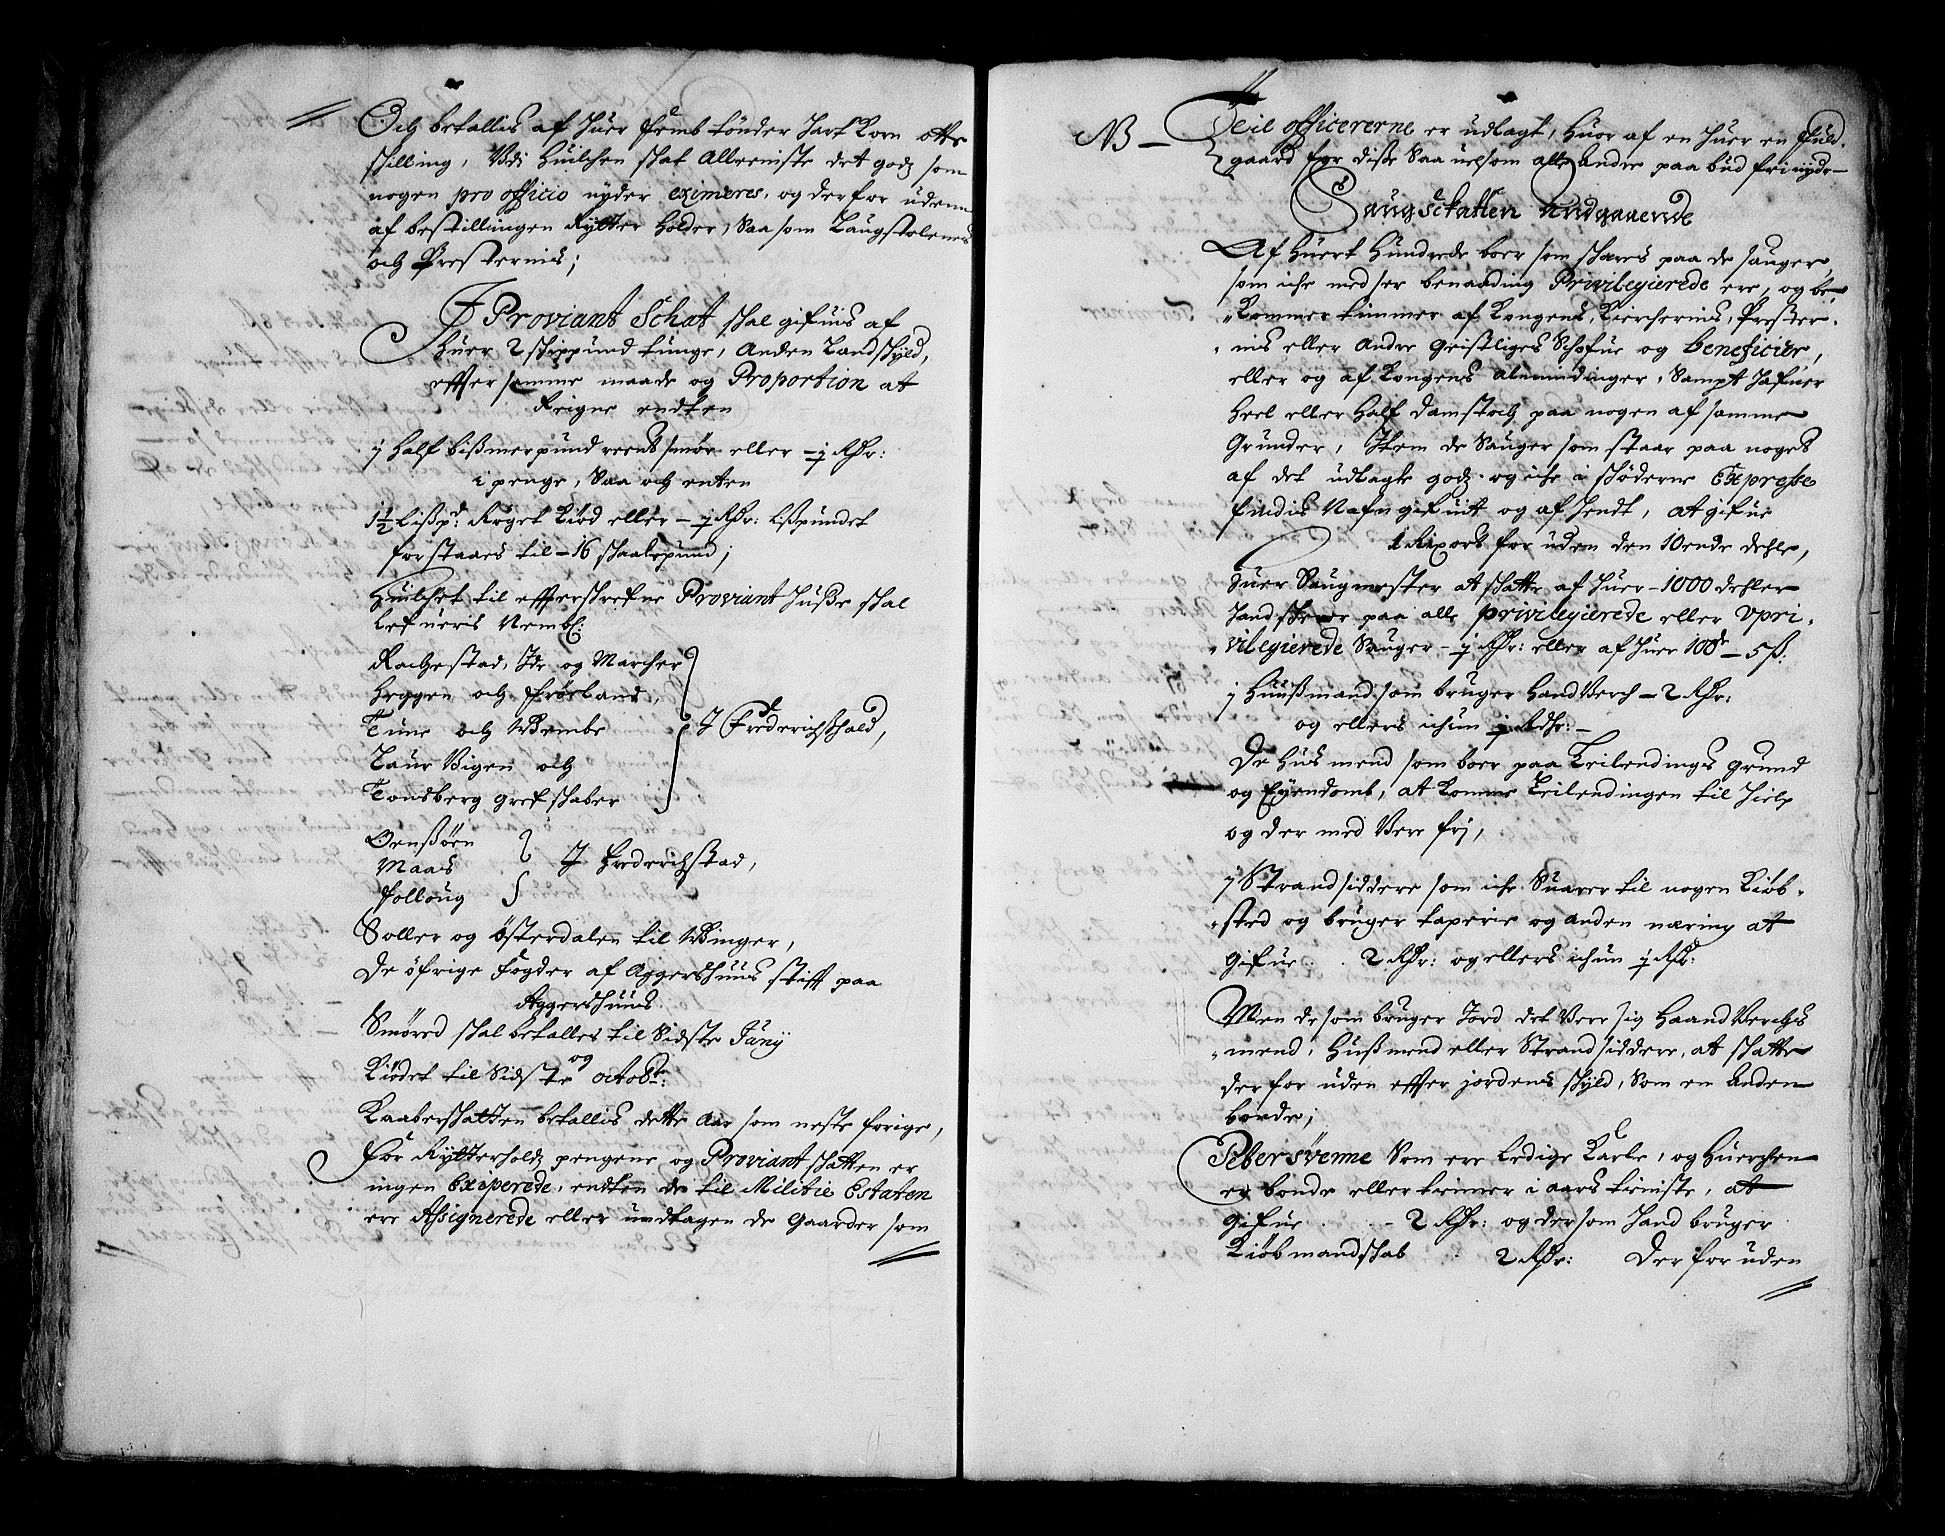 Och betallis af huer femb tønder hart Korn otte
skilling, Vdi huilchen skat Alleeniste det godz som
nogen pro officio nyder eximeres, og derfor udenn
af bestillingen Rytter holder, Saa som Laugstolenes
och Presternis;
I Proviant Schat skal gifuis af
huer 2 skippund tunge, Anden Landskyld,
effter samme maade og Proportion at
Reigne endten
j half bißmerpund reent smør eller - j Rdr:
i penge, Saa och enten
1½ Lißpd: Røget Kiød eller - j Rdr: Lßpundet
forstaaes til - 16 skaalepund;
Huilchet til effterschrefne Proviant huße skal
Lefueris Nembl:
Rachestad, Ide og Marcher
Heggen och Frøeland,
Tune och Wembe
Laur Vigen och
Tonsberg Grefskaber
I Frederichshald,
Oensøen
Maas
Polloug
I Frederichstad,
Soller og Østerdalen til Winger,
De øfrige Fogder af Aggershuus stifft paa
Aggershuus
Smøred skal betalles til Sidste Junij
og
Kiødet til Sidste octobr:
Kaaberskatten betallis dette Aar som neste forige,
For Rytterholdz pengene og Proviant skatten er
ingen Exiperede, endten de til Militie Estaten
ere Assignerede eller undtagen de Gaarder som
NB - Teil officererne er udlagt, huor af en huer en fuld
gaard for diße Saauelsom alle Andre paabud fri nyde
Saugschatten Andgaaende
Af huert Hundrede boer som skæres paa de sauger,
som iche med ser benaading Privilegierede ere, og be
Kommer timmer af Kongens, Kierchernis, Prester
nis eller andre geistliges Skofue og beneficier,
eller og af Kongens almindinger, Sampt hafuer
heel eller half damstoch paa nogen af samme
Grunder, Item de Sauger som staar paa noget
af det udlagte godz og iche i skøderne Expresse
findis Nafngifuit og afhendt, at gifue
1 Rixort for uden den 10ende dehle,
Huer Saugmester at skatte af huer - 1000 dehler
hand skærer paa alle privilegierede eller Vpri
vilegierede Sauger - j Rdr: eller af huer 100de - 5 s:
j Huußmand som bruger HandVerch - 2 Rdr:
og ellers ichun j Rdr: -
De Husmend som boer paa Leilendings grund
og Eyendomb, at komme Leilendingen til hielp
og der med Vere frj,
j Strandsiddere som iche Suarer til nogen Kiøb
sted og bruger taperie og anden næring at
gifue . . 2 Rdr: og ellers ichun j Rdr:
Men de som bruger Jord det Vere sig Haand Verchs
mend, Hußmend eller Strandsiddere, at skatte
der for uden effter jordens skyld, Som en Anden
bonde;
Pebersvenne Som ere Ledige Karle, og huerchen
er bonde eller tienner i aars tieniste, at
gifue . - 2 Rdr: og dersom hand bruger
Kiøbmandskab . 2 Rdr: Der for uden